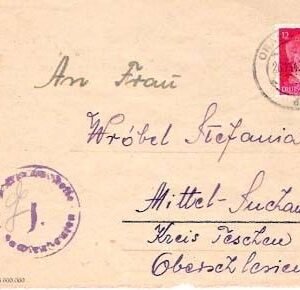 12
An Frau
Wróbel Stefania
Mittel-Suchau
J.
Kreis Teschen
Oberschlesien